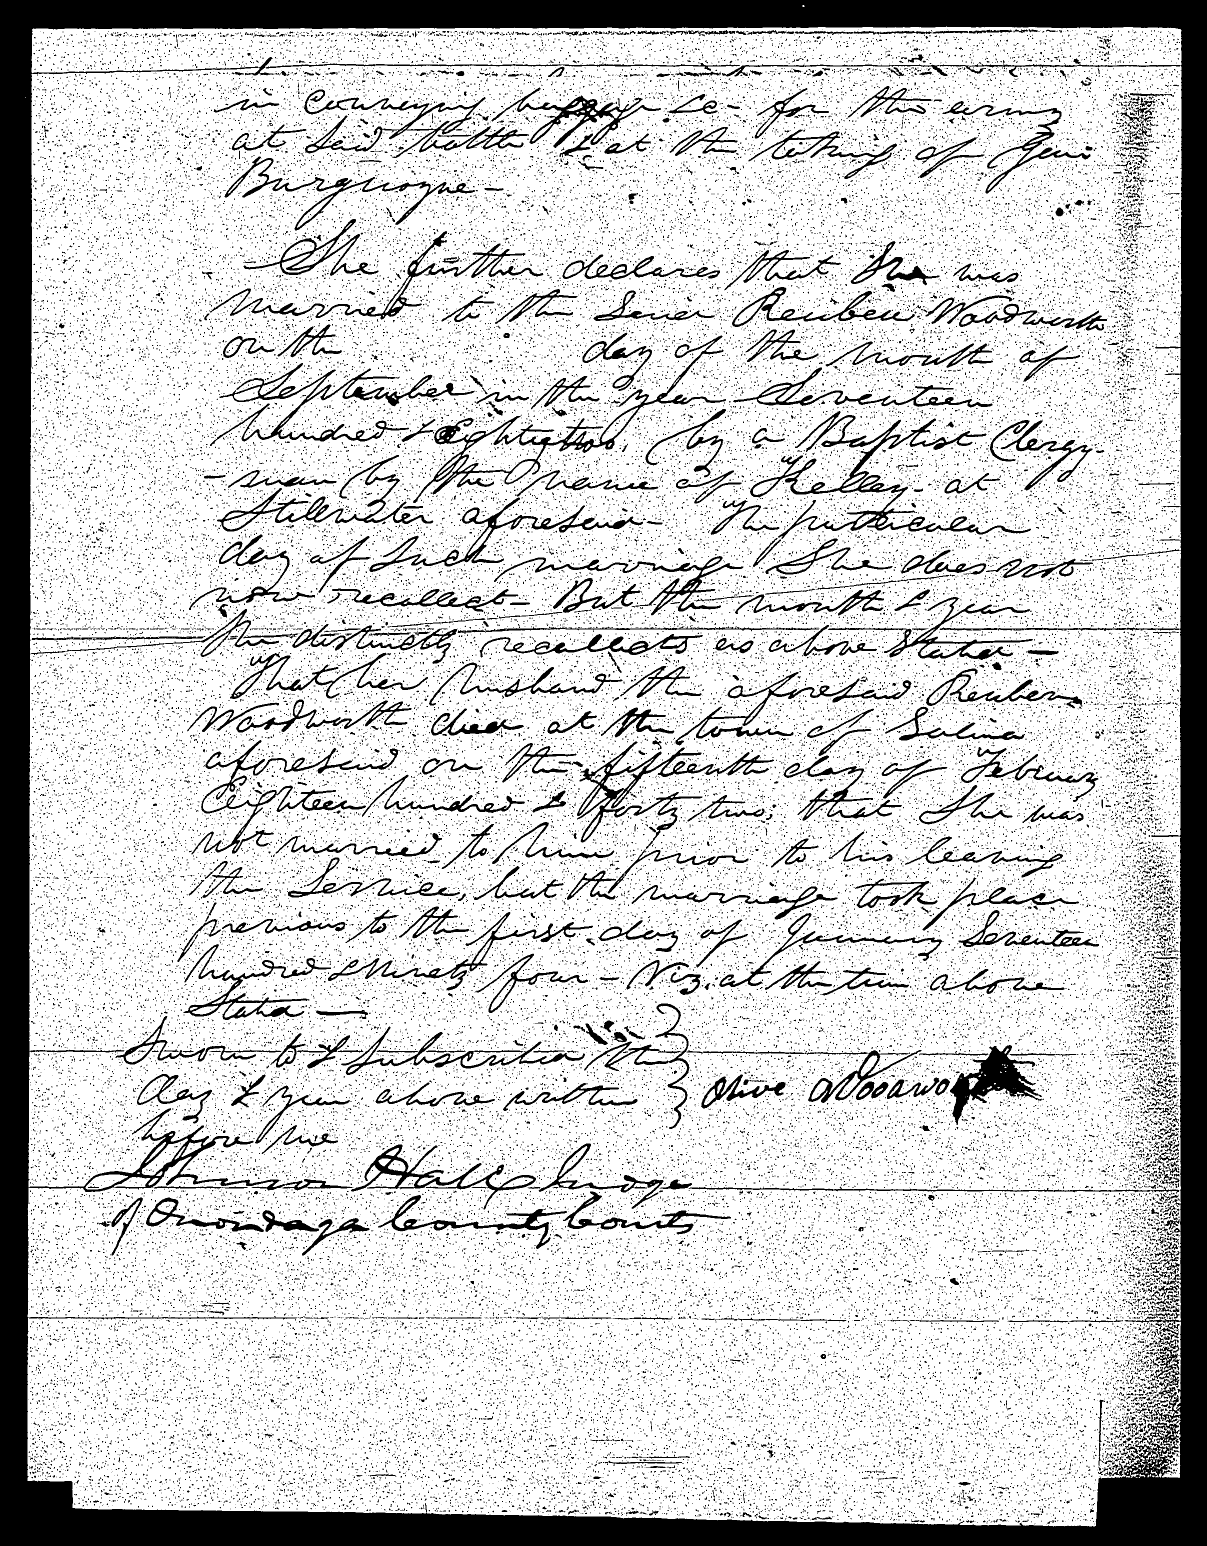 in conveying baggage &c- for the army
at said battle & at the taking of Genl
Burguoyne -
- She further declares that she was
married to the Said Reuben Woodworth
on the day of the month of
September in the year Seventeen
hundred & Eighty two, by a Baptist Clergy-
- man by the name of Kelley - at
Stillwater aforesaid - The particular
day of such marriage She does not
now recollect - But the month & year
she distinctly recollects as above Stated -
That her husband the aforesaid Reuben
Woodworth died at the town of Salina
aforesaid on the fifteenth day of February
Eighteen hundred & forty two; that She was
not married to him prior to his leaving
the Service, but the marriage took place
previous to the first day of January Seventeen
hundred & Ninety four - Viz. at the time above
Stated -
Sworn to & Subscribed the
day & year above written
before me
Olive Woodwo
Johnson Hall Judge
of Onondaga County Courts